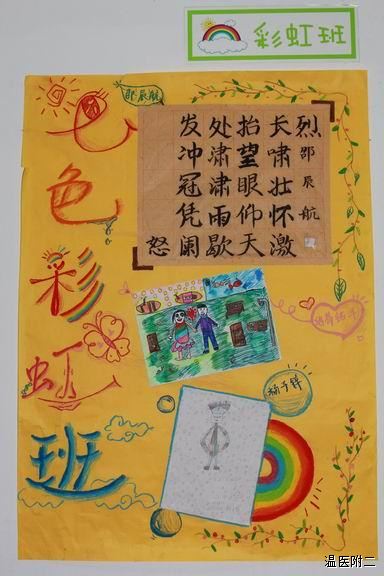 彩虹班
七色彩虹班
邵辰航
怒
发冲冠凭阑
处潇潇雨歇
抬望眼仰天
长啸壮怀激
烈
邵辰航
温医附二